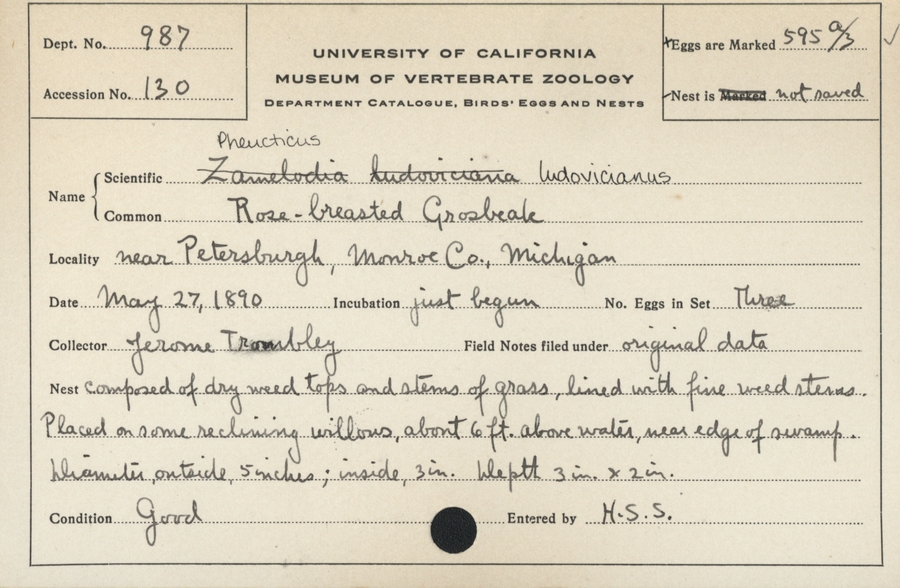 Dept. No. 987
Accession No. 130
UNIVERSITY OF CALIFORNIA
MUSEUM OF VERTEBRATE ZOOLOGY
DEPARTMENT CATALOGUE, BIRDS' EGGS AND NESTS
Eggs are Marked 595 a/3
Nest is Marked not saved
Pheucticus
Name
Scientific Zamelodia ludoviciana ludovicianus
Common Rose-breasted Grosbeak
Locality near Petersburgh, Monroe Co., Michigan
Date May 27, 1890 Incubation just begun No. Eggs in Set Three
Collector Jerome Trombley Field Notes filed under original data
Nest composed of dry weed tops and stems of grass, lined with fine weed stems.
Placed on some reclining willows, about 6 ft. above water, near edge of swamp.
Diameter, outside, 5 inches; inside, 3 in. Depth 3 in. x 2 in.
Condition Good Entered by H.S.S.